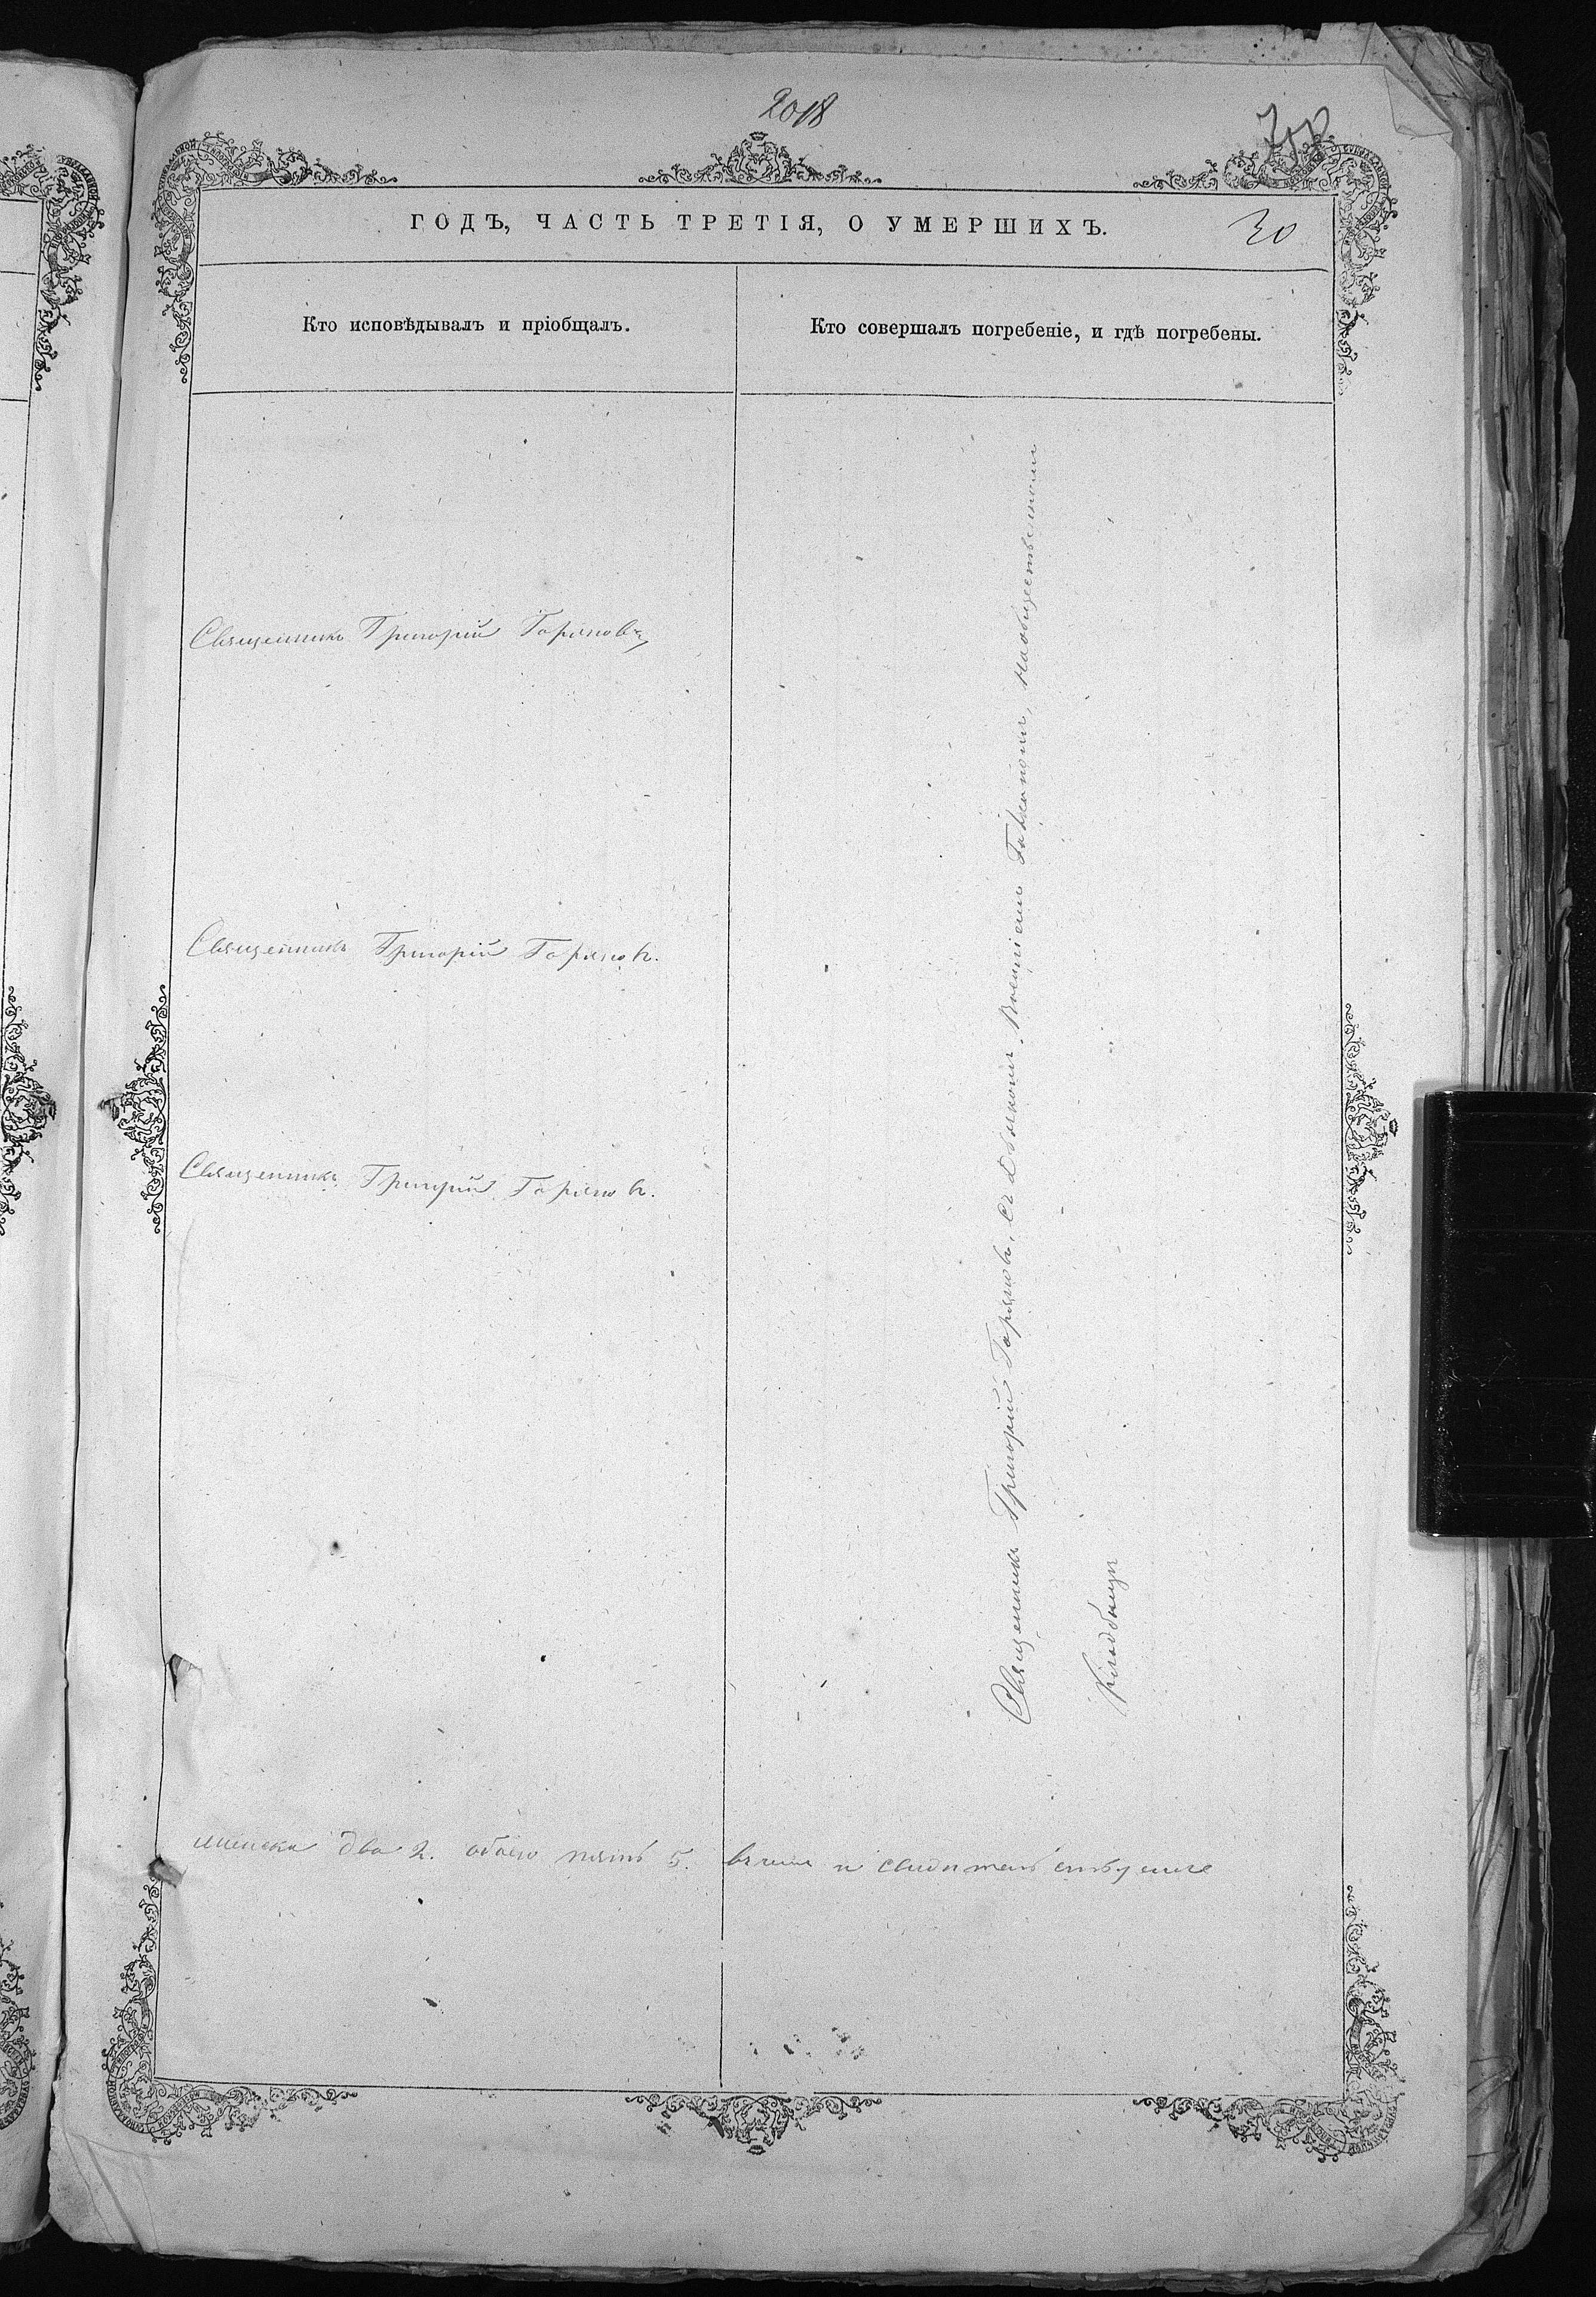 2018
ГОДЪ, ЧАСТЬ ТРЕТІЯ, О УМЕРШИХЪ. 30
Кто исповѣдывалъ и пріобщалъ.
Кто совершалъ погребеніе, и гдѣ погребены.
Священникъ Григорій Горяновъ
Священникъ Григорій Горяновъ.
Священникъ Григорій Горяновъ.
Священникъ Григорій Горяновъ, съ на общественномъ
Кладбищѣ
женска два 2. обоего пять 5. въ чемъ и свидѣтельствуемъ